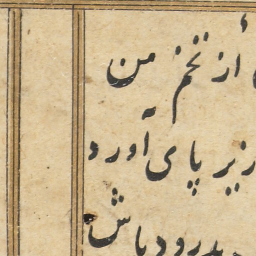 از تخم من
زیر پای آورد
بدرود باش